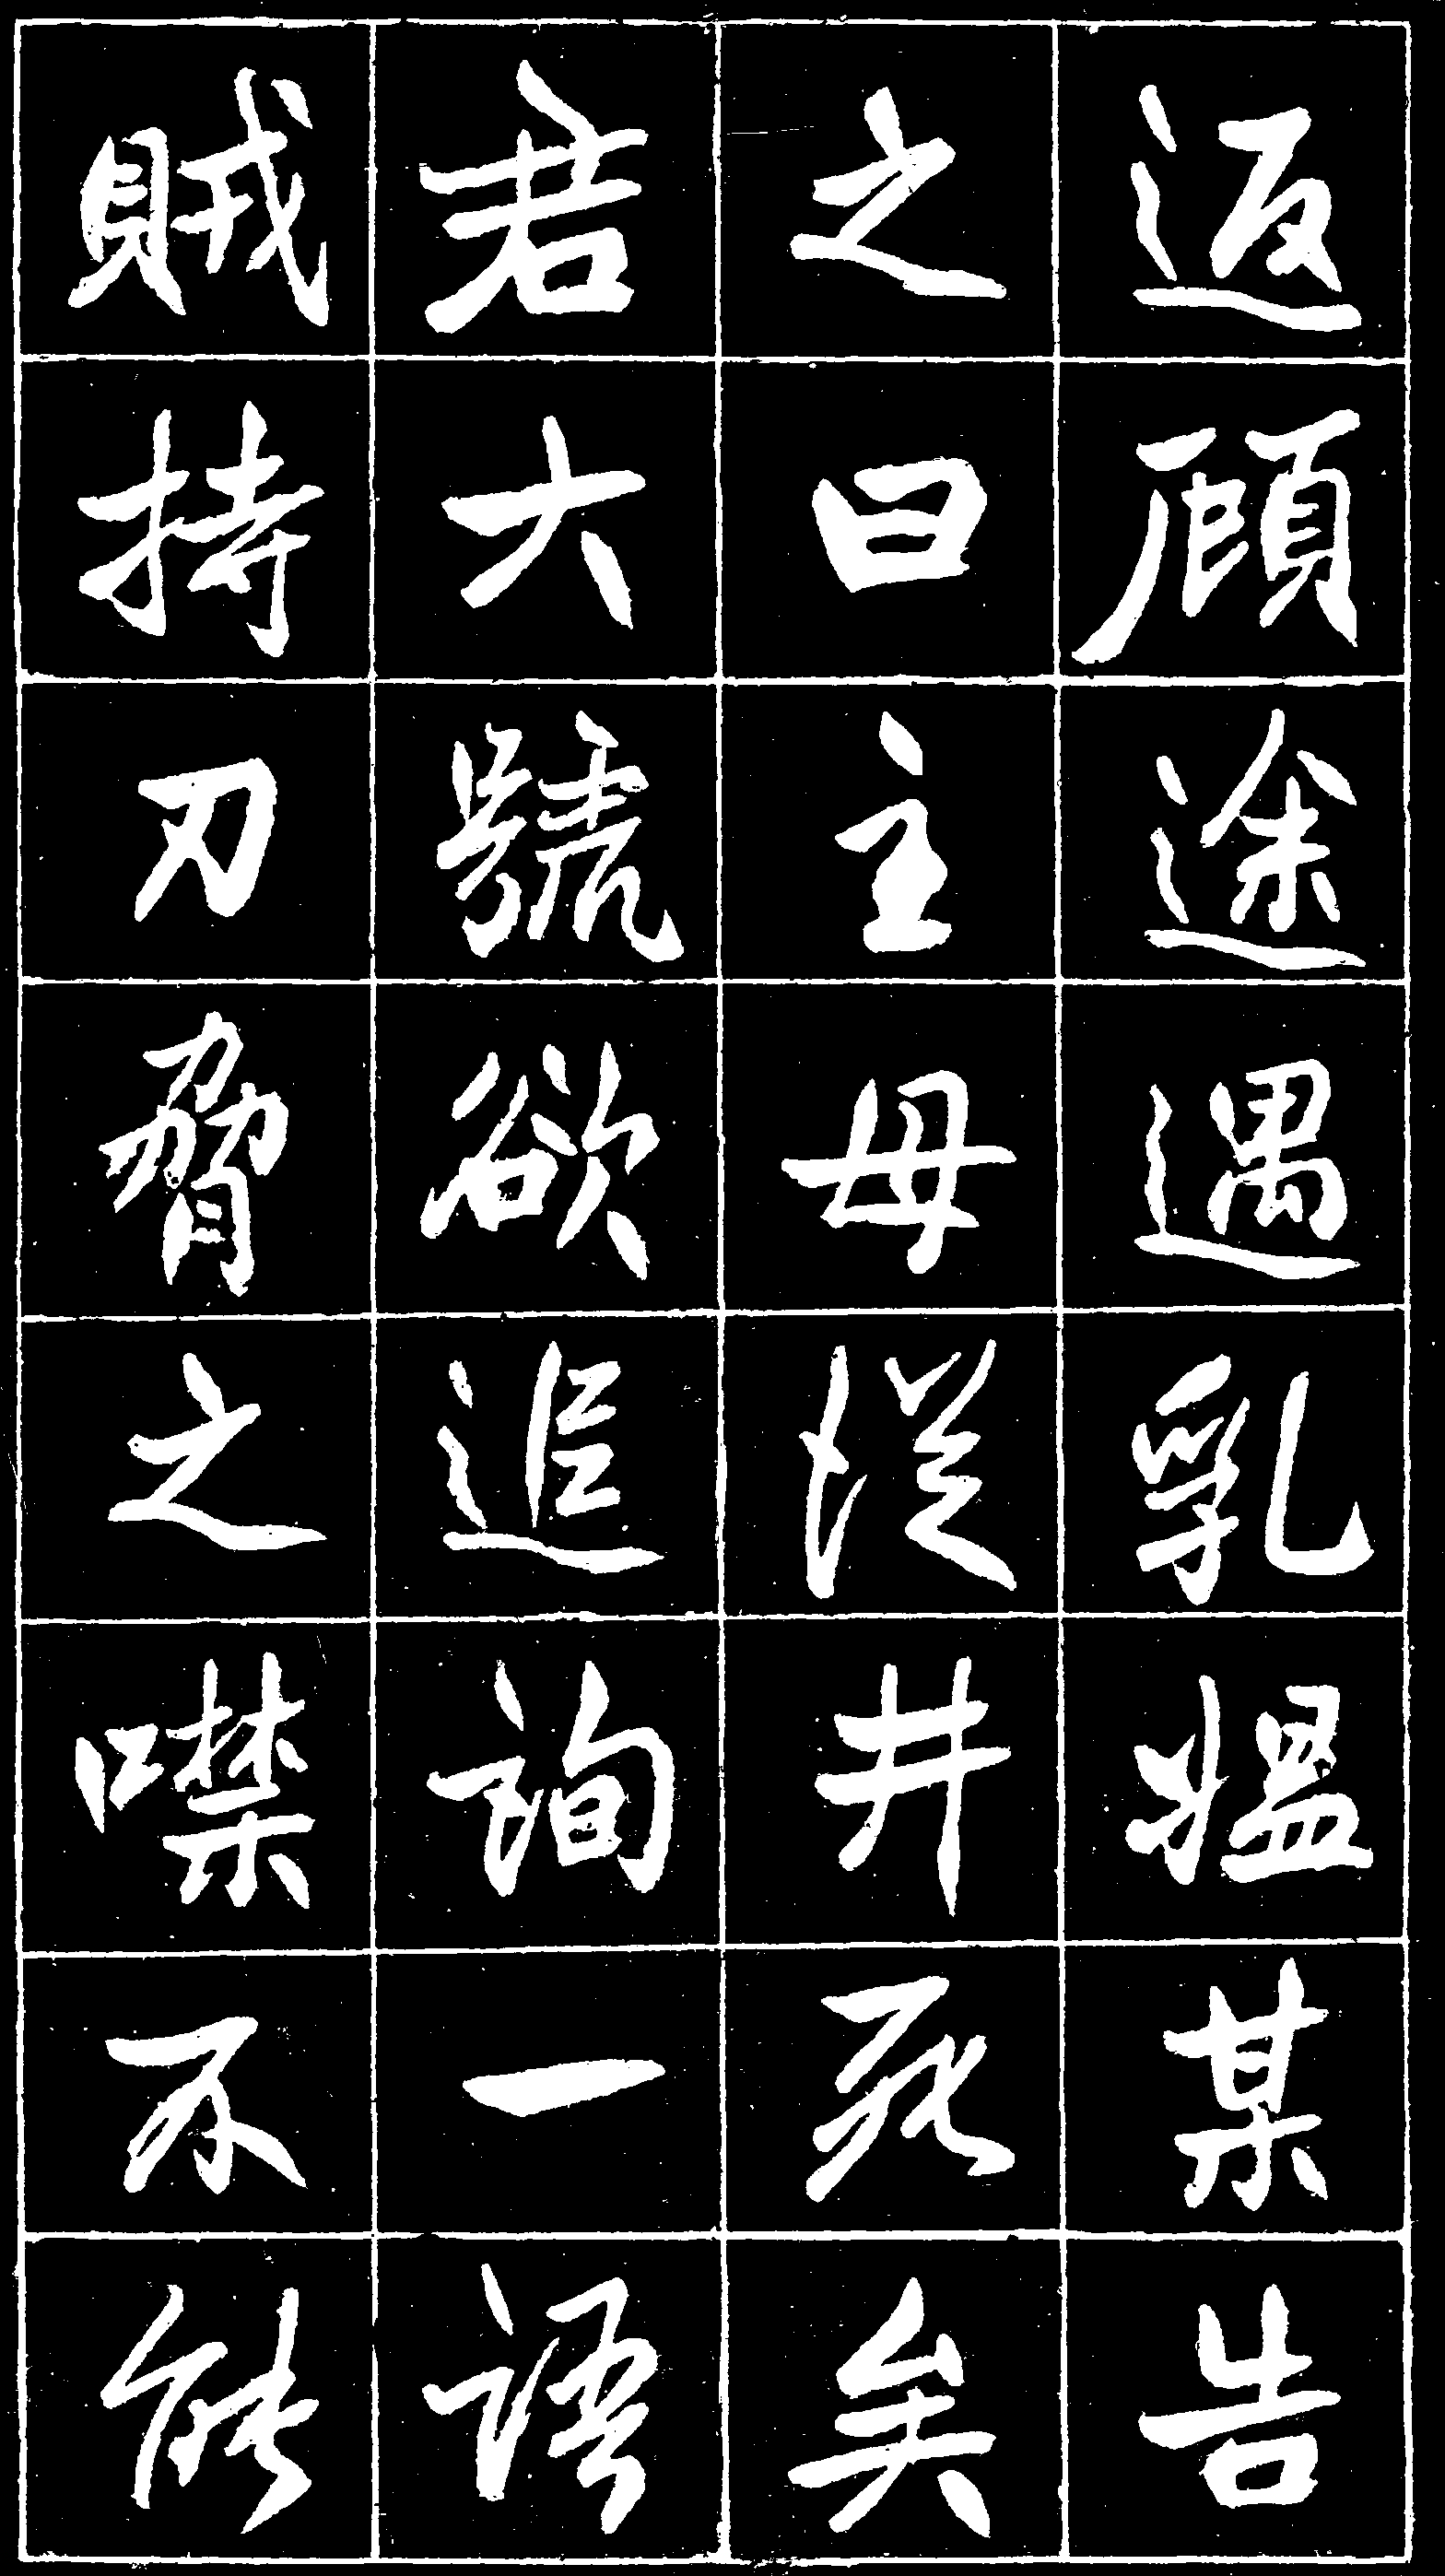 返顧途遇乳媼某告
之曰主母從井死矣
君大號欲追詢一語
賊持刀脅之噤不能